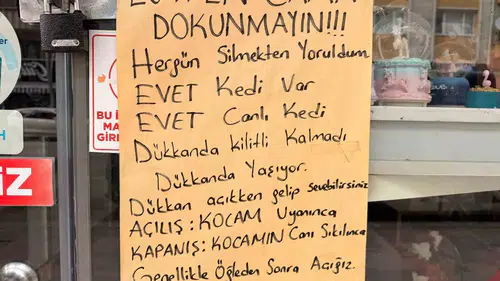 DOKUNMAYIN!!!
Hergün Silmekten Yoruldum
EVET Kedi Var
EVET Canlı Kedi
Dükkanda kilitli Kalmadı
Dükkanda Yaşıyor.
Dükkan açıkken gelip sevebilirsiniz
AÇILIŞ: KOCAM Uyanınca
KAPANIŞ: KOCAMIN Canı Sıkılınca
Genellikle Öğleden Sonra Açığız.
BU İ
MA
GİR
İZ